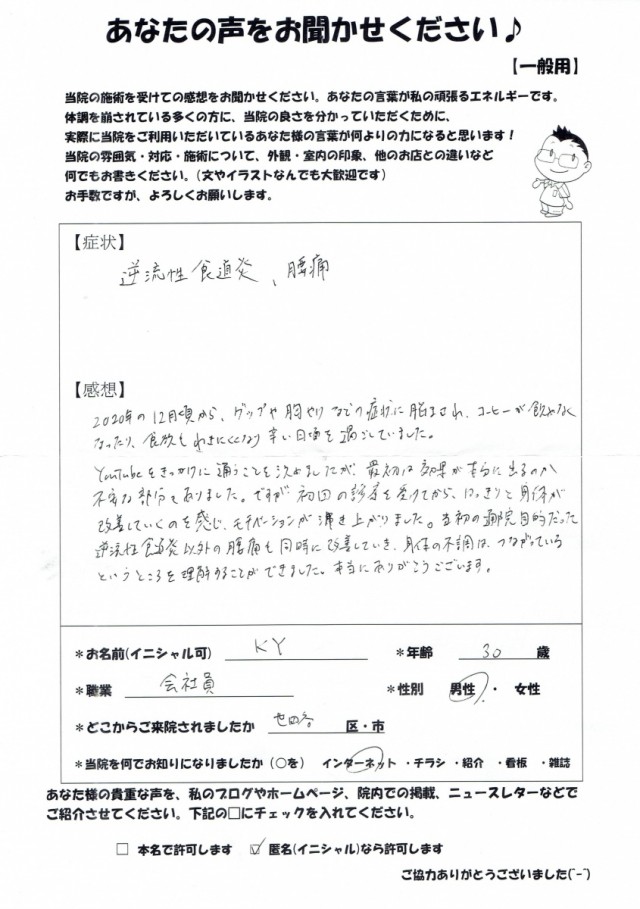 あなたの声をお聞かせください♪
【一般用】
当院の施術を受けての感想をお聞かせください。あなたの言葉が私の頑張るエネルギーです。
体調を崩されている多くの方に、当院の良さを分かっていただくために、
実際に当院をご利用いただいているあなた様の言葉が何よりの力になると思います！
当院の雰囲気・対応・施術について、外観・室内の印象、他のお店との違いなど
何でもお書きください。（文やイラストなんでも大歓迎です）
お手数ですが、よろしくお願いします。
【症状】
逆流性食道炎、腰痛
【感想】
2020年の12月頃から、ゲップや胸やけなどの症状に悩まされ、コーヒーが飲めなく
なったり、食欲もわきにくくなり辛い日頃を過ごしていました。
YouTubeをきっかけに通うことを決めましたが、最初は効果が本当に出るのか
不安な部分もありました。ですが初回の診察を受けてから、はっきりと身体が
改善していくのを感じ、モチベーションが沸き上がりました。当初の通院目的だった
逆流性食道炎以外の腰痛も同時に改善していき、身体の不調は、つながっている
というところを理解することができました。本当にありがとうございます。
＊お名前（イニシャル可） KY ＊年齢 30 歳
＊職業 会社員 ＊性別 男性・女性
＊どこからご来院されましたか 世田谷 区・市
＊当院を何でお知りになりましたか（○を） インターネット ・チラシ ・紹介 ・看板 ・雑誌
あなた様の貴重な声を、私のブログやホームページ、院内での掲載、ニュースレターなどで
ご紹介させてください。下記の□にチェックを入れてください。
□ 本名で許可します ☑ 匿名（イニシャル）なら許可します
ご協力ありがとうございました(^-^)